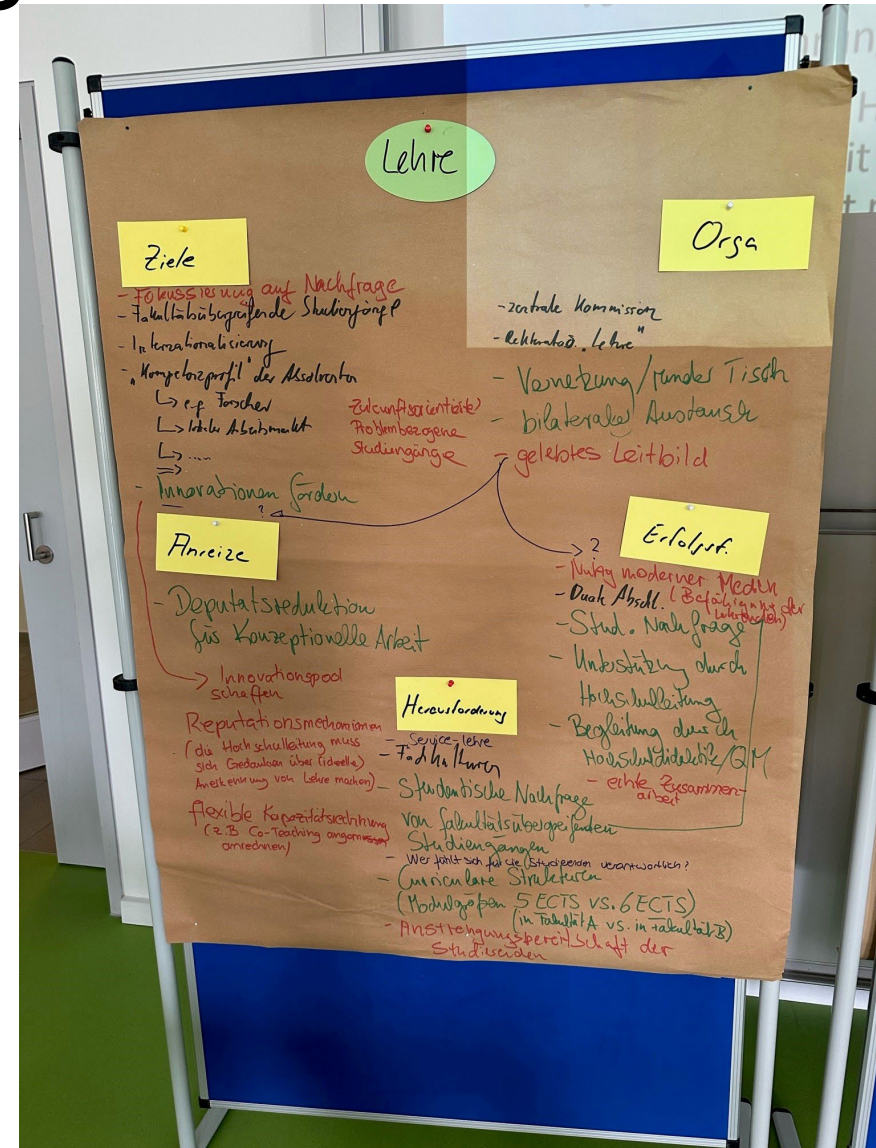 Lehre
Ziele
- Fokussierung auf Nachfrage
- Fakultätsübergreifende Studiengänge
- Internationalisierung
- "Kompetenzprofil" der Absolventen
↳ e.g. Forscher
↳ lokaler Arbeitsmarkt
↳ .....
⇒
Zukunftsorientierte/
Problembezogene
Studiengänge
- Innovationen fördern
Orga
- zentrale Kommission
- "Lehre"
- Vernetzung/runder Tisch
- bilateraler Austausch
- gelebtes Leitbild
?
Anreize
- Deputatsreduktion
für Konzeptionelle Arbeit
→ Innovationspool
schaffen
Reputationsmechanismen
(die Hochschulleitung muss
sich Gedanken über (ideelle)
Anerkennung von Lehre machen)
flexible Kapazitätsrechnung
(z.B Co-Teaching
anrechnen)
→ ?
Erfolgsf.
- Nutzg moderner Medien
(Befähigung der
Lehrenden)
- Abschl.
- Stud. Nachfrage
- Unterstützung durch
Hochschulleitung
- Begleitung durch
Hochschuldidaktik/QM
- echte Zusammen-
arbeit
Herausforderung
- Service-lehre
- Fachkulturen
- Studentische Nachfrage
von fakultätsübergreifenden
Studiengängen
- Wer fühlt sich für die Studierenden verantwortlich?
- Curriculare Strukturen
(Modulgrößen 5 ECTS vs. 6 ECTS)
(in Fakultät A vs. in Fakultät B)
- Anstrengungsbereitschaft der
Studierenden